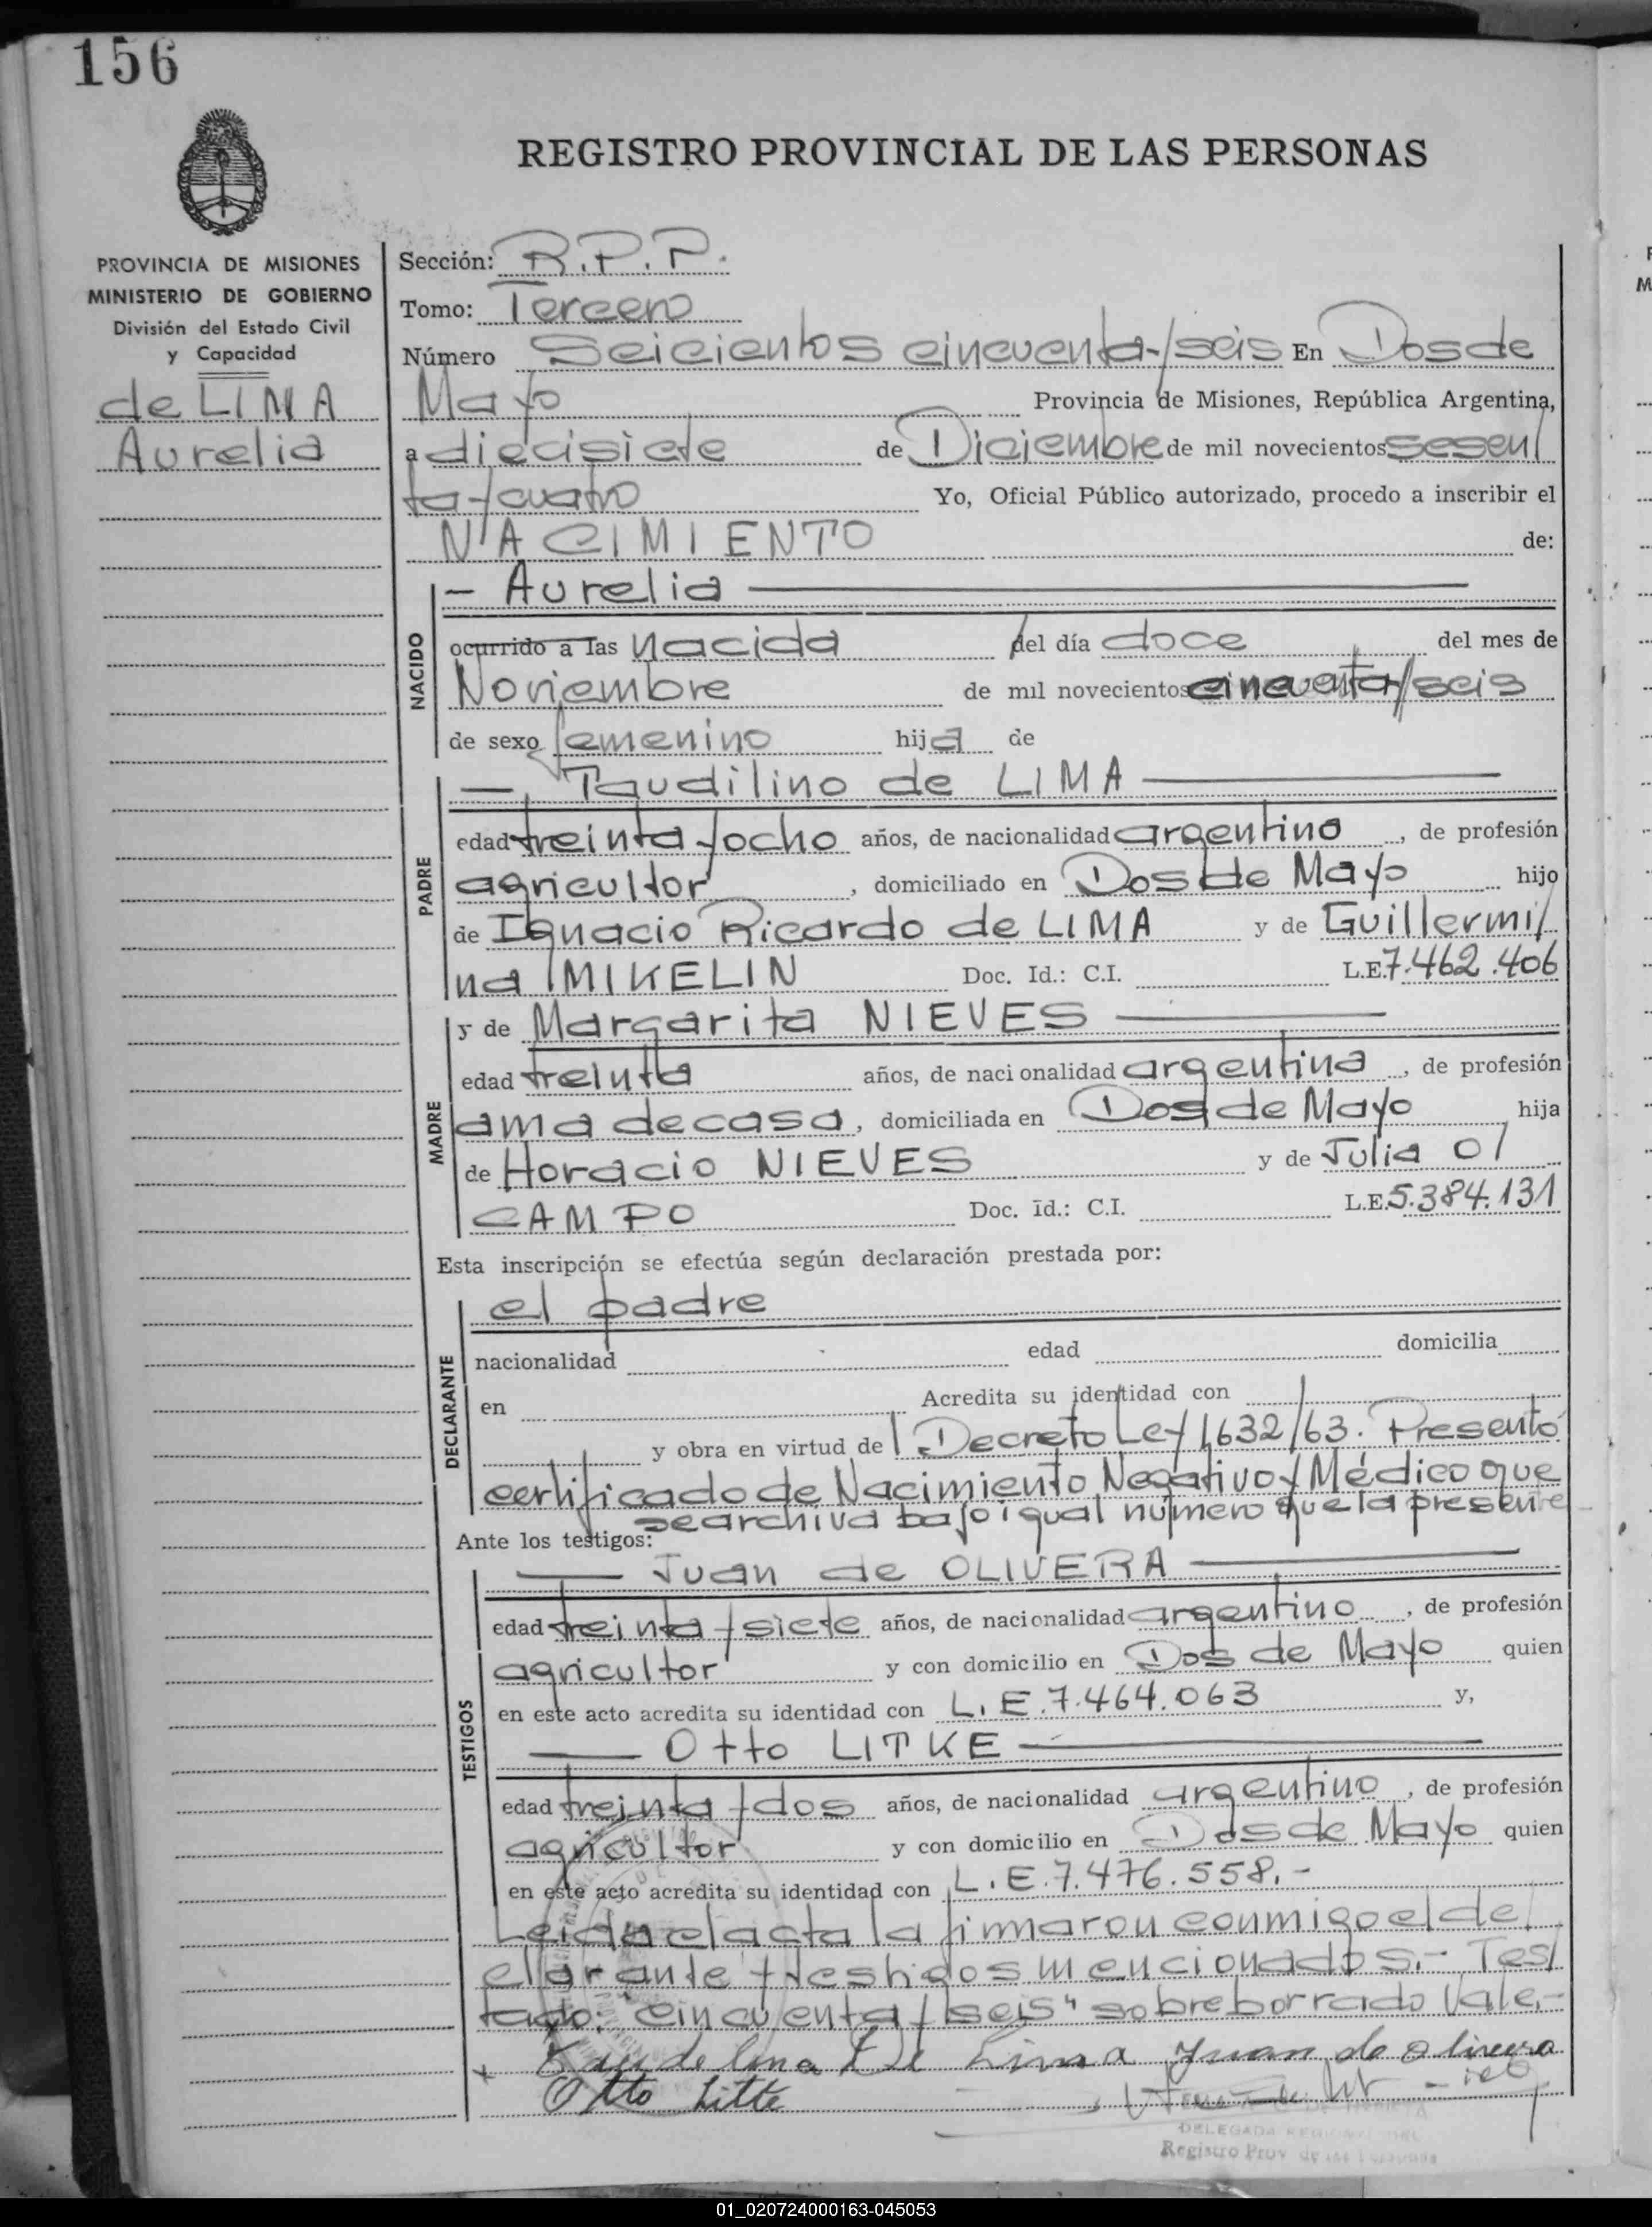 156
REGISTRO PROVINCIAL DE LAS PERSONAS
PROVINCIA DE MISIONES
MINISTERIO DE GOBIERNO
División del Estado Civil
y Capacidad
de LIMA
Aurelia
Sección: R.P.P.
Tomo: Tercero
Número Seicientos cincuenta y seis En Dos de
Mayo Provincia de Misiones, República Argentina,
a diecisiete de Diciembre de mil novecientos sesen/
ta y cuatro Yo, Oficial Público autorizado, procedo a inscribir el
NACIMIENTO de:
NACIDO
— Aurelia —
ocurrido a las nacida del día doce del mes de
Noviembre de mil novecientos cincuenta y seis
de sexo femenino hija de
PADRE
— Taudilino de LIMA —
edad treinta y ocho años, de nacionalidad argentino, de profesión
agricultor, domiciliado en Dos de Mayo hijo
de Ignacio Ricardo de LIMA y de Guillermi/
na MIKELIN Doc. Id.: C.I. L.E. 7.462.406
MADRE
y de Margarita NIEVES —
edad treinta años, de nacionalidad argentina, de profesión
ama de casa, domiciliada en Dos de Mayo hija
de Horacio NIEVES y de Julia O/
CAMPO Doc. Id.: C.I. L.E. 5.384.131
Esta inscripción se efectúa según declaración prestada por:
DECLARANTE
el padre
nacionalidad edad domicilia
en Acredita su identidad con
y obra en virtud de Decreto Ley 1,632/63. Presentó
certificado de Nacimiento Negativo y Médico que
se archiva bajo igual número que la presente
Ante los testigos:
TESTIGOS
— Juan de OLIVERA —
edad treinta y siete años, de nacionalidad argentino, de profesión
agricultor y con domicilio en Dos de Mayo quien
en este acto acredita su identidad con L.E. 7.464.063 y,
— Otto LITKE —
edad treinta y dos años, de nacionalidad argentino, de profesión
agricultor y con domicilio en Dos de Mayo quien
en este acto acredita su identidad con L.E. 7.476.558.-
Leida el acta la firmaron conmigo el de/
clarante y testigos mencionados.- Tes/
tado: "cincuenta y seis" sobreborrado Vale.-
De Lima Juan de Olivera
Otto Litke
DELEGADA REGIONAL DEL
Registro Prov de las Personas
01_020724000163-045053